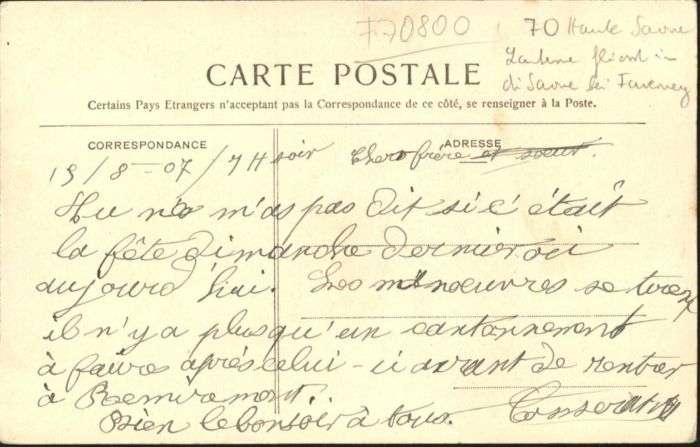 F70800
70 Haute Saone
Lanterne fliesst in
di Saone bei Faverney
CARTE POSTALE
Certains Pays Etrangers n'acceptant pas la Correspondance de ce côté, se renseigner à la Poste.
CORRESPONDANCE
ADRESSE
19/8-07/7H soir
Chers frère et soeur.
Tu n'as m'as pas dit si c'était
la fête dimanche dernier ou
aujourd'hui. Les manoeuvres se tirent
il n'y a plus qu'un cantonnement
à faire après celui-ci avant de rentrer
à Remiremont.
Bien le bonsoir à tous.